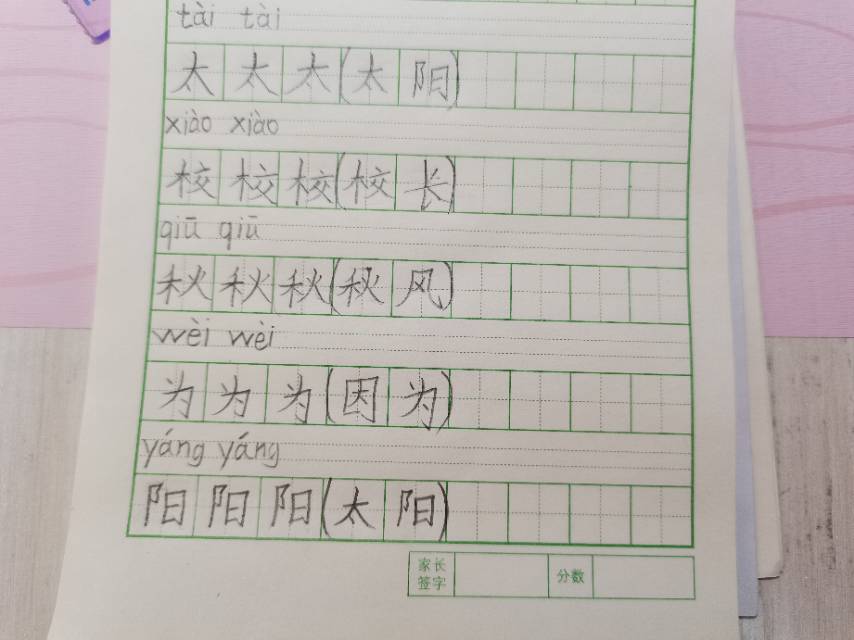 tài tài
太太太(太阳)
xiào xiào
校校校(校长)
qiū qiū
秋秋秋(秋风)
wèi wèi
为为为(因为)
yáng yáng
阳阳阳(太阳)
家长签字 分数